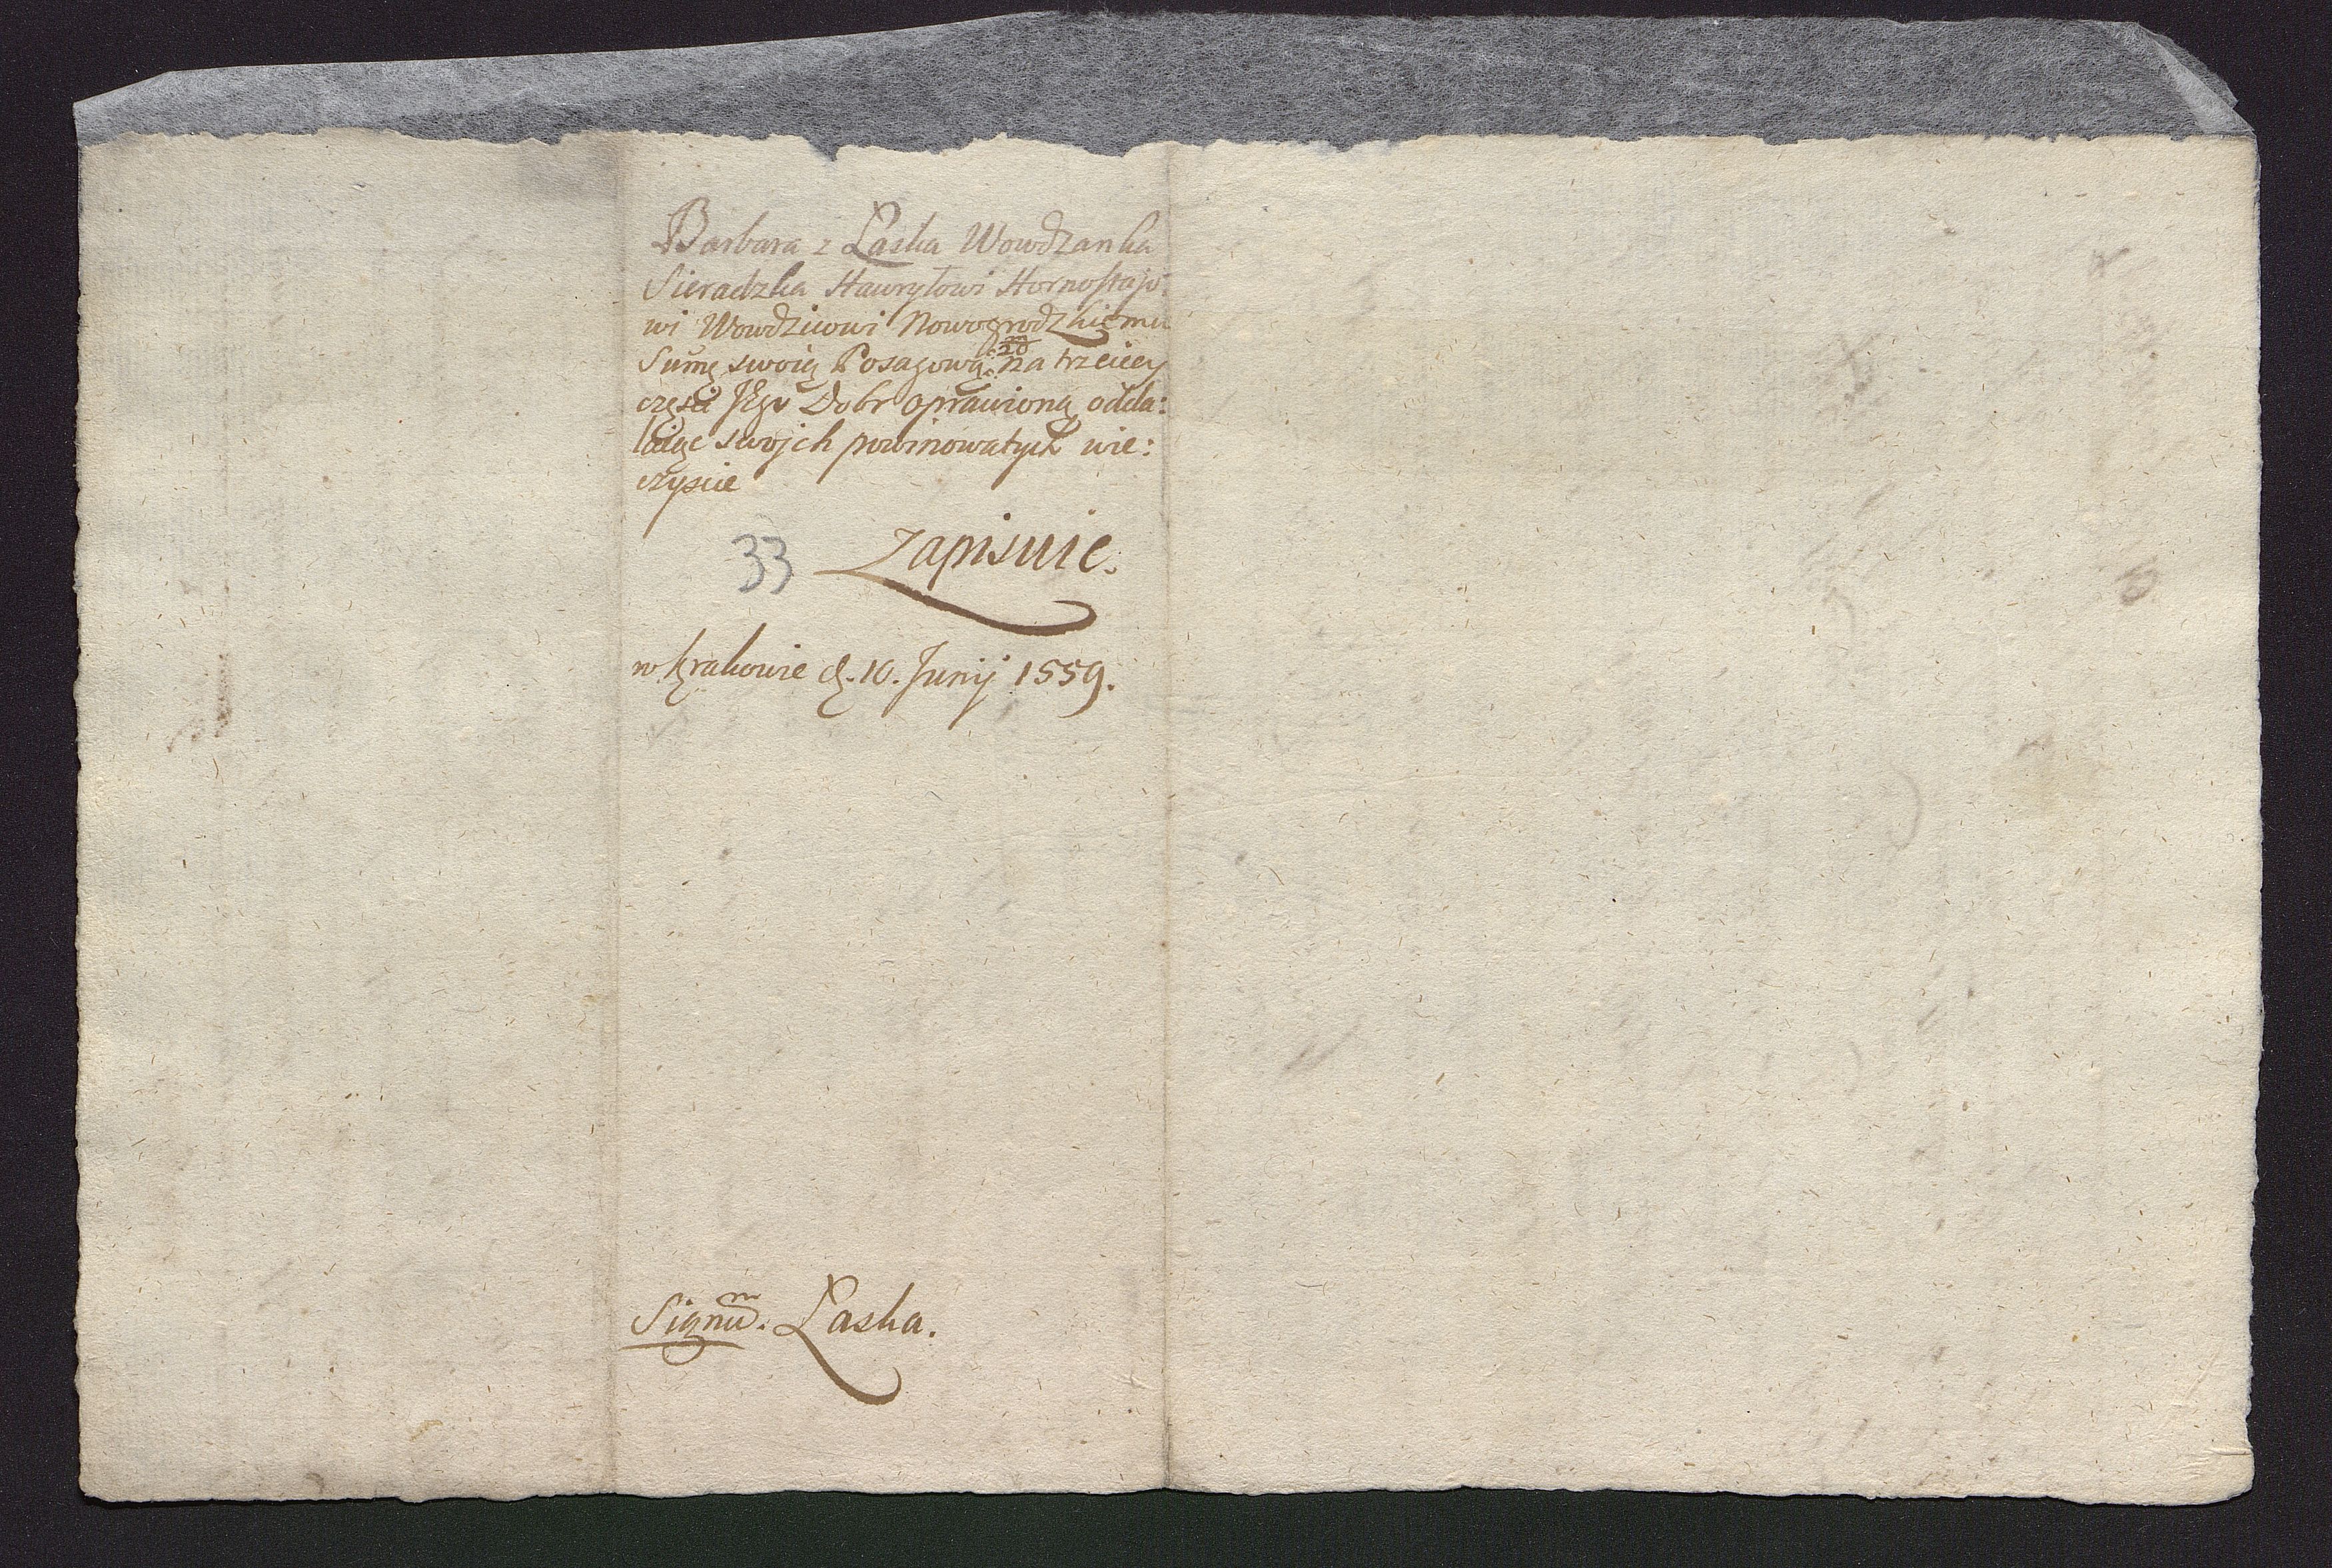 Barbara z Łaska Wowdzanka
Sieradzka Hawryłowi Hornostajo:
wi Wowdzicowi Nowogrodzkiemu
Sumę swoię Posagową m/20 na trzeciey
części Jego Dobr oprawioną odda:
laiąc swojch powinowatych wie:
czyscie
33 Zapisuie.
w Krakowie d. 10. Junij 1559.
Signũ. Łaska.